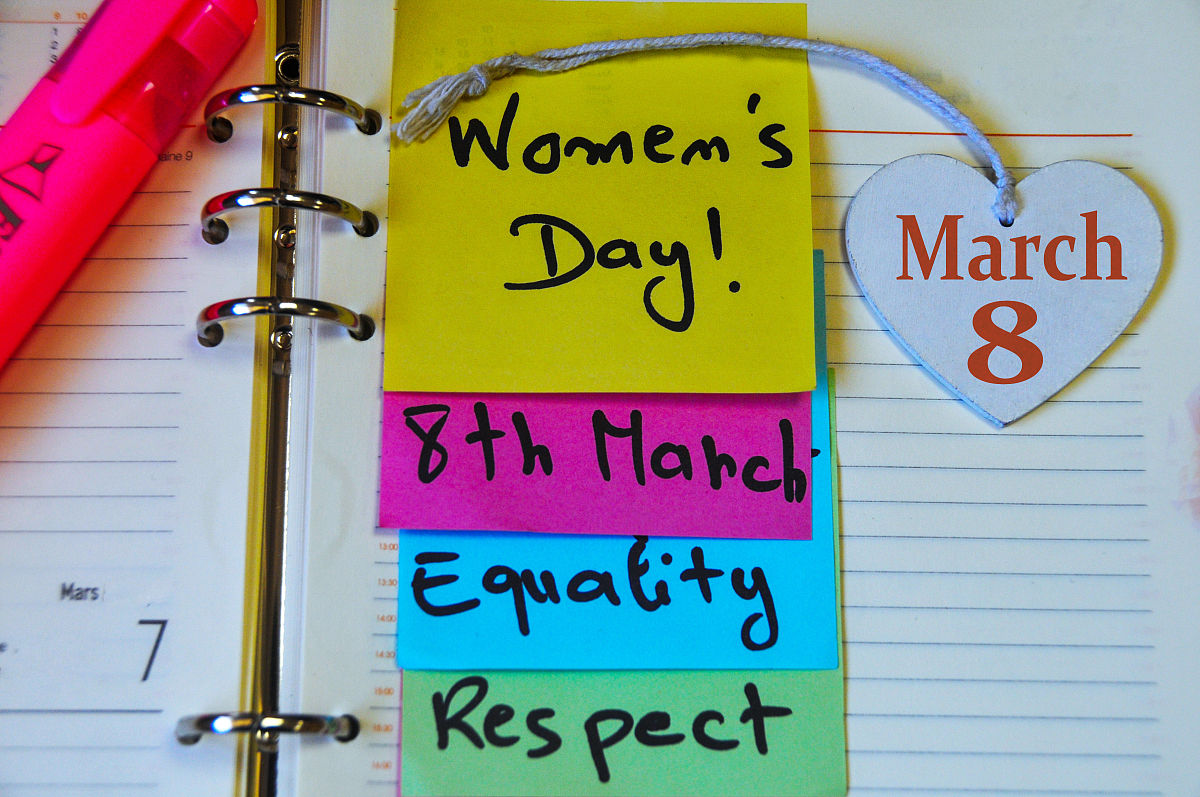 Women's
Day!
8th March
Equality
Respect
March
8
Mars
7
13:00
13:30
14:00
14:30
15:00
16:00